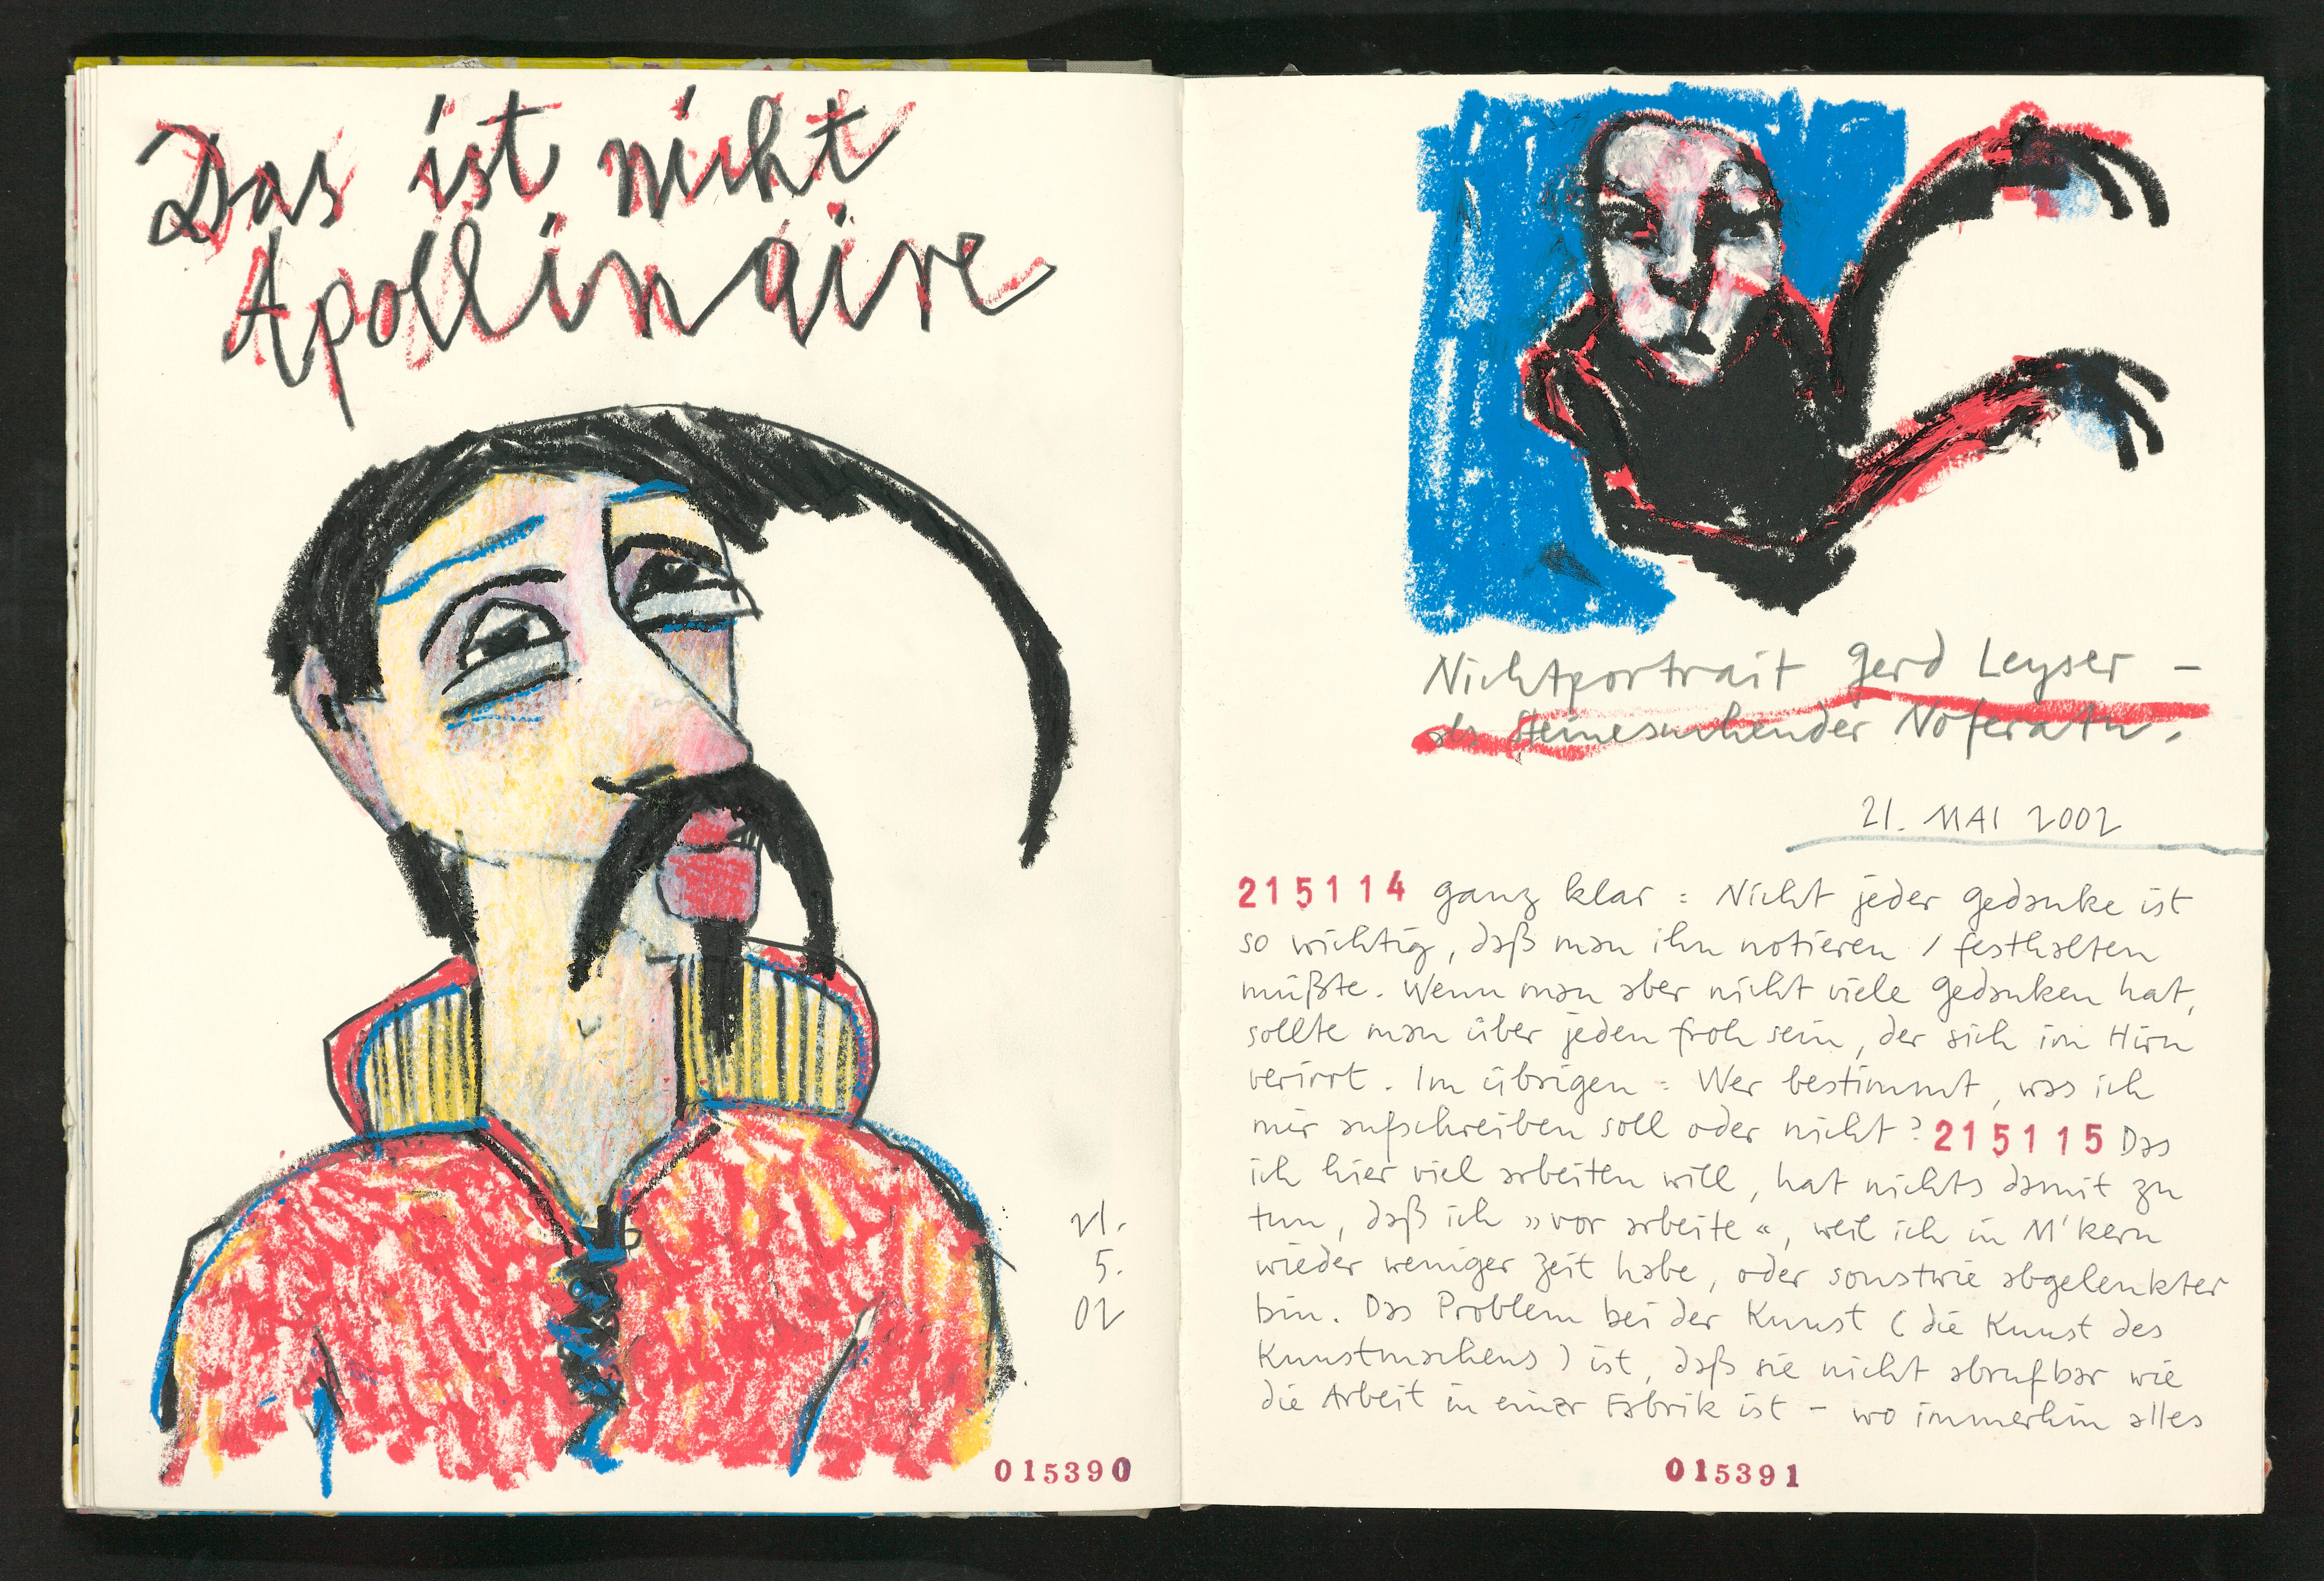 Das ist nicht
Apollinaire
21.
5.
02
015390
Nichtportrait Gerd Leyser –
als steinesuchender Noferatu.
21. MAI 2002
215114 ganz klar : Nicht jeder Gedanke ist
so wichtig, daß man ihn notieren / festhalten
müßte. Wenn man aber nicht viele Gedanken hat,
sollte man über jeden froh sein, der sich im Hirn
verirrt. Im übrigen : Wer bestimmt, was ich
mir aufschreiben soll oder nicht? 215115 Das
ich hier viel arbeiten will, hat nichts damit zu
tun, daß ich »vor arbeite«, weil ich in M'kern
wieder weniger Zeit habe, oder sonstwie abgelenkter
bin. Das Problem bei der Kunst ( die Kunst des
Kunstmachens ) ist, daß sie nicht abrufbar wie
die Arbeit in einer Fabrik ist – wo immerhin alles
015391